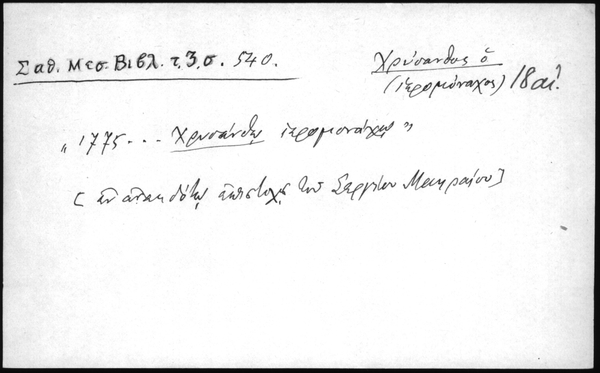 Σαθ. Μεσ. Βιβλ. τ. 3, σ. 540.
Χρύσανθος ὁ
(ἱερομόναχος) 18 αἰ.
„ 1775 ... Χρυσάνθῳ ἱερομονάχῳ "
[ ἐν ἐπιστολῇ τοῦ Σεργίου Μακραίου ]